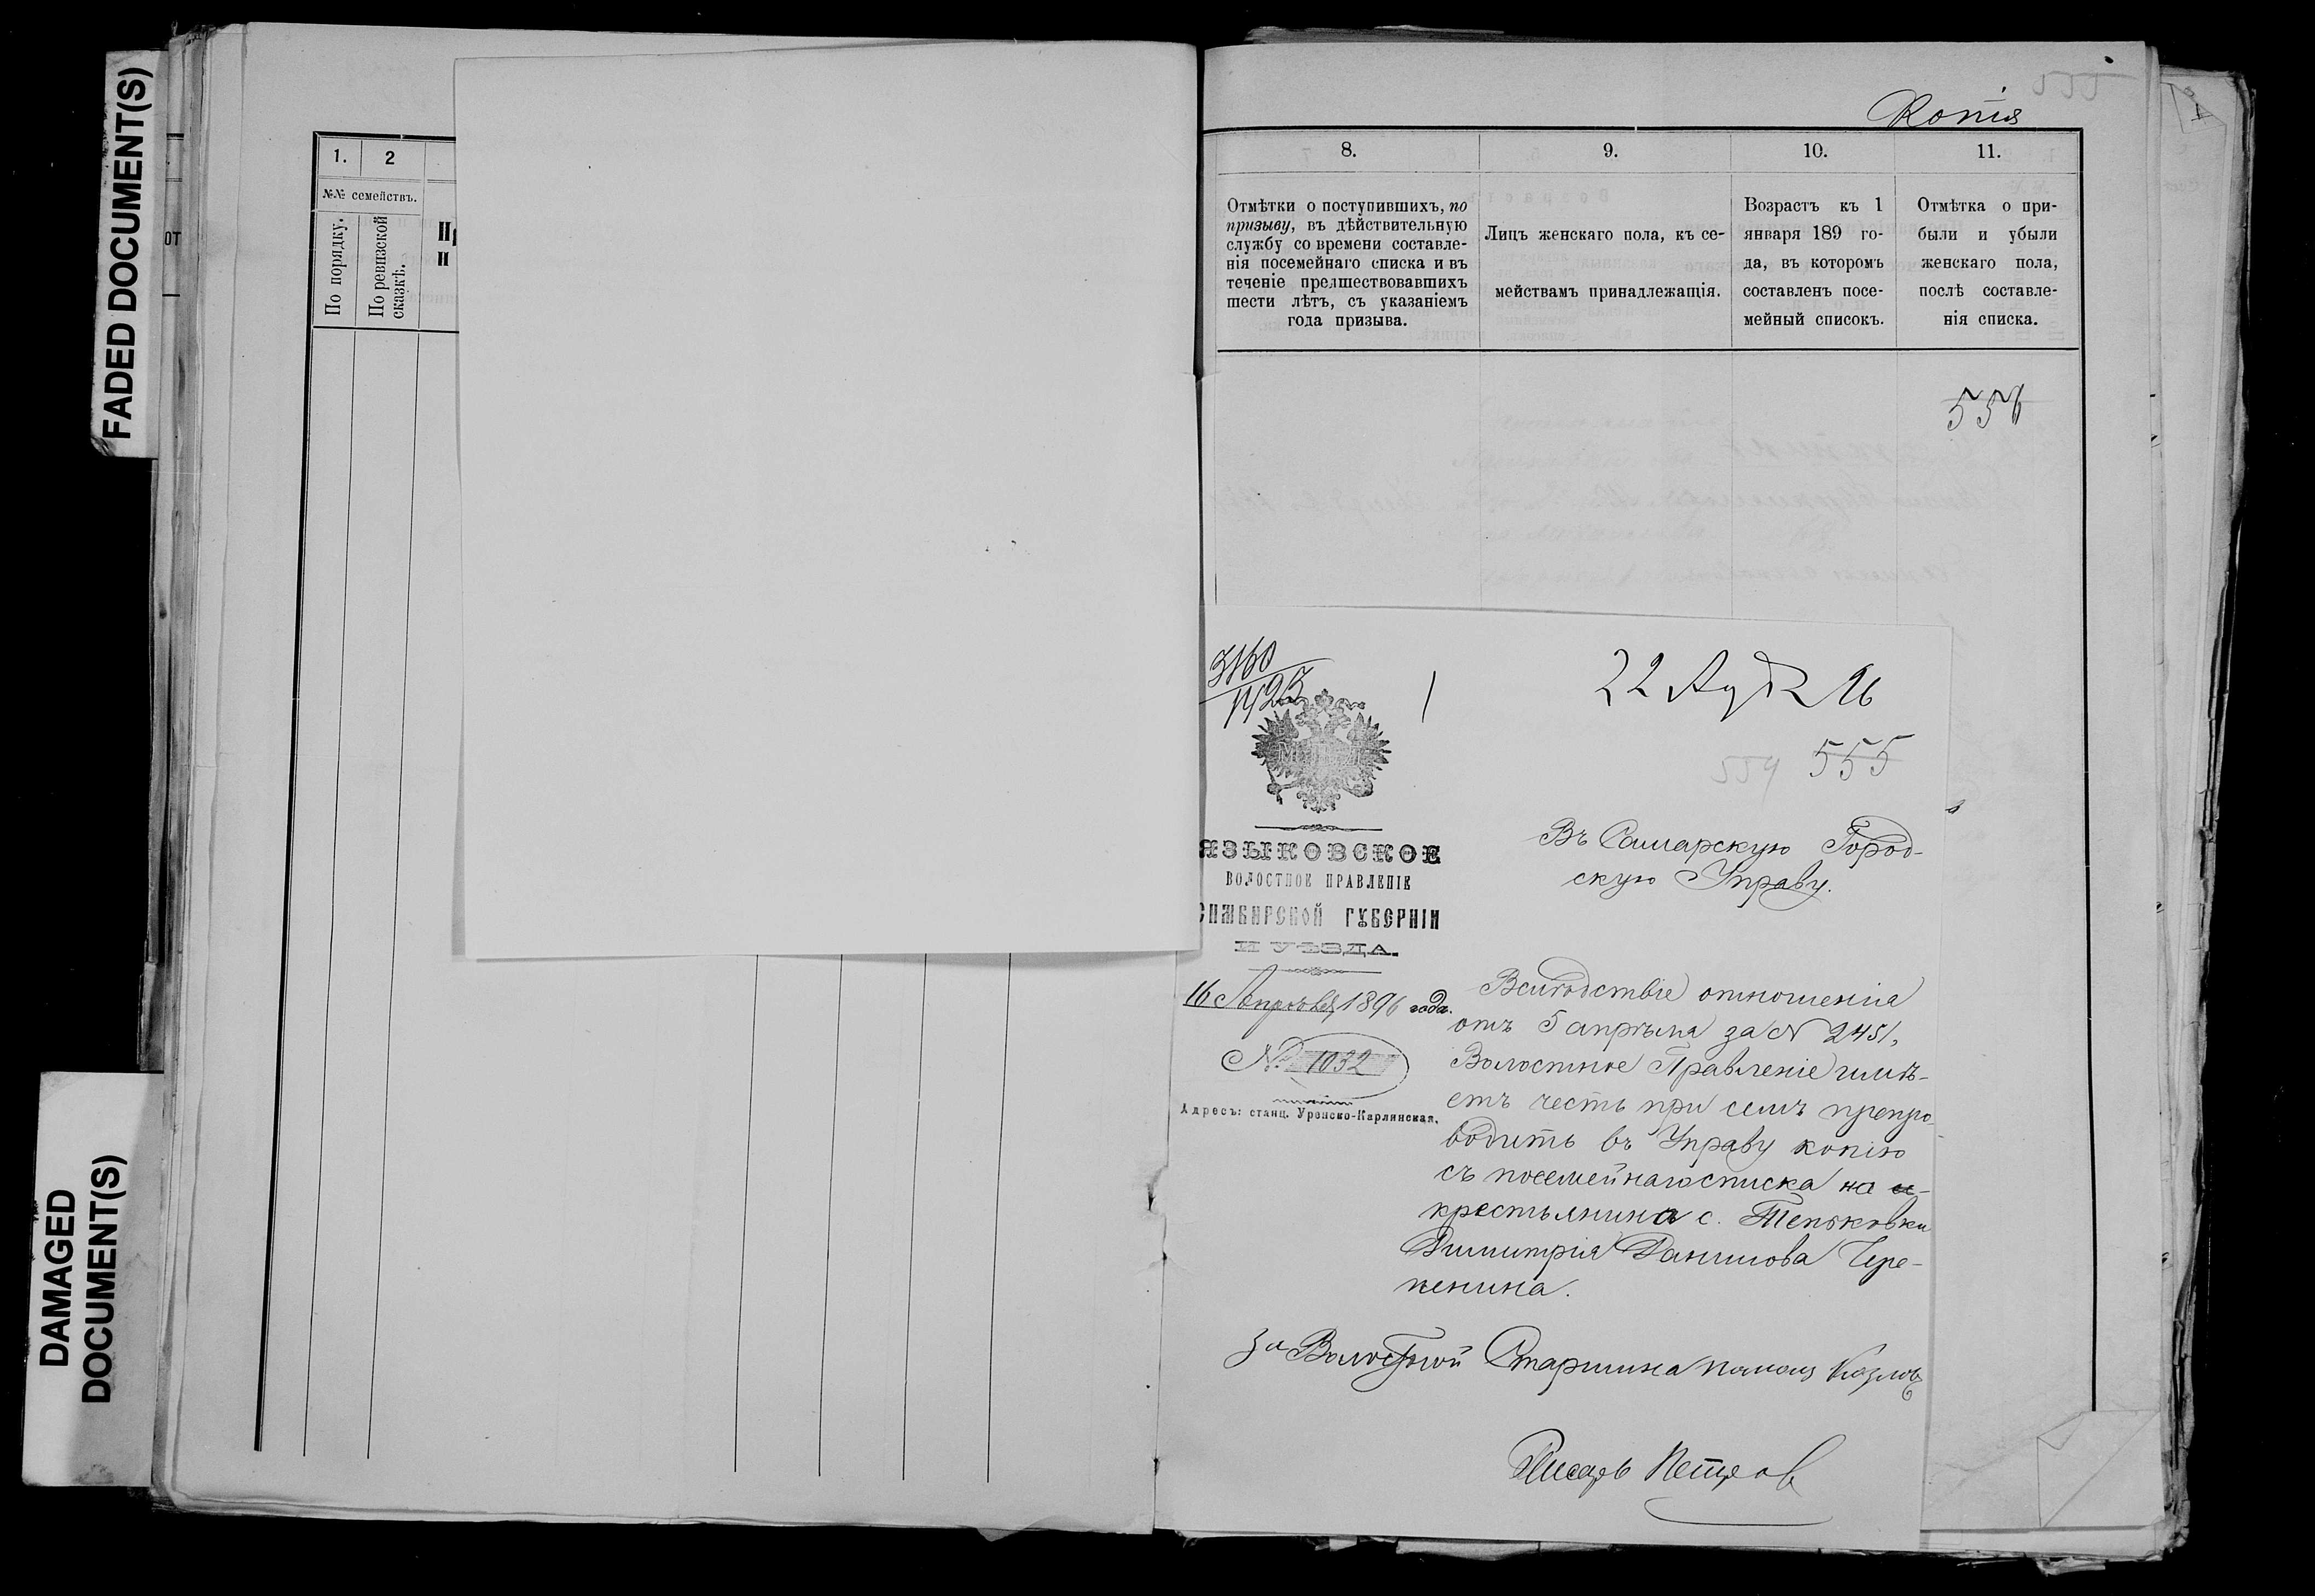 FADED DOCUMENT(S)
DAMAGED
DOCUMENT(S)
от
1.
2
№№ семействъ.
По порядку.
По ревизской
сказкѣ.
Копія
555
8.
9.
10.
11.
Отмѣтки о поступившихъ, по
призыву, въ дѣйствительную
службу со времени составле-
нія посемейнаго списка и въ
теченіе прелшествовавшихъ
шести лѣтъ, съ указаніемъ
года призыва.
Лицъ женскаго пола, къ се-
мействамъ принадлежащія.
Возрастъ къ 1
января 189 го-
да, въ которомъ
составленъ посе-
мейный списокъ.
Отмѣтка о при-
были и убыли
женскаго пола,
послѣ составле-
нія списка.
556
3160
22 96
554 555
ЯЗЫКОВСКОЕ
ВОЛОСТНОЕ ПРАВЛЕНІЕ
СИМБИРСКОЙ ГУБЕРНІИ
И УѢЗДА.
16 Апрѣля 1896 года.
№ 1032
Адресъ: станц. Уренско-Карлинская.
Въ Самарскую Город-
скую Управу.
Вслѣдствіе отношенія
отъ 5 апрѣля за № 2451,
Волостное Правленіе имѣ-
етъ честь при семъ препро-
водить въ Управу копію
съ посемейнаго списка на
крестьянина с.
Димитрія Данилова Чере-
пенина.
За Волостной Старшина Козловъ
Писарь Петров